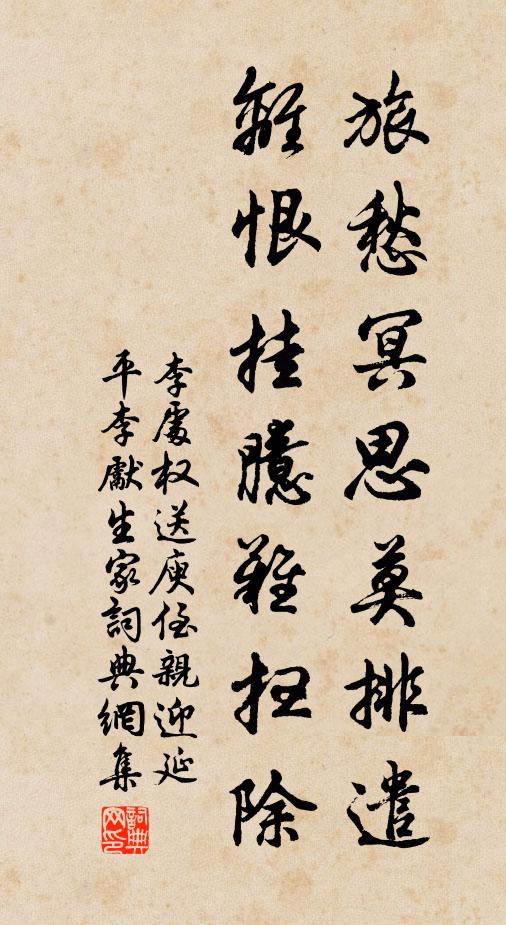 旅愁冥思莫排遣
離恨挂臆難扫除
李處权送庾侄親迎延
平李獻生家詞典網集
詞典网印